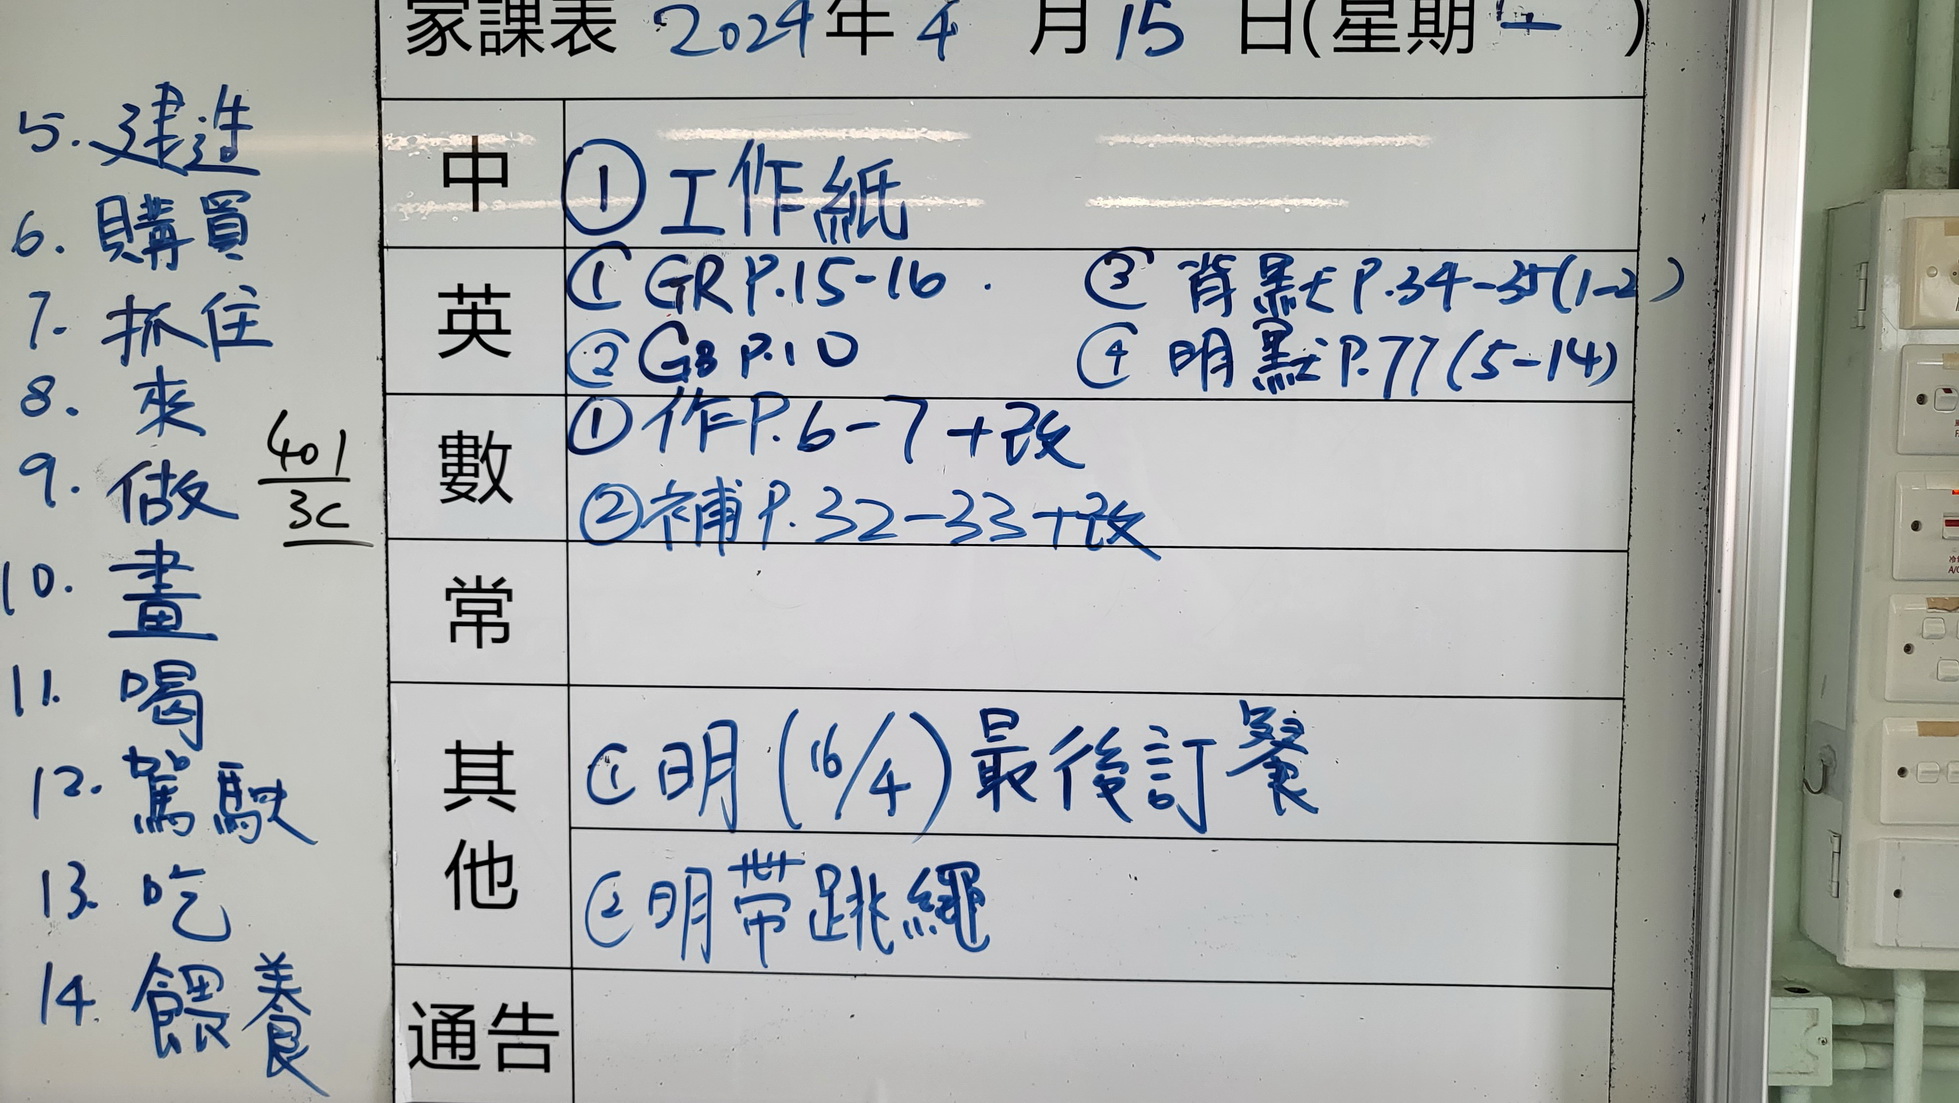 家課表 2024年4月15日(星期一)
5. 建造
6. 購買
7. 抓住
8. 來
9. 做
10. 畫
11. 喝
12. 駕駛
13. 吃
14. 餵養
401
3C
中
① 工作紙
英
① GR P.15-16.
② GB P.10
③ 背默 P.34-35(1-2)
④ 明默 P.77(5-14)
數
① 作P.6-7+改
② 補P.32-33+改
常
其他
① 明(16/4)最後訂餐
② 明帶跳繩
通告